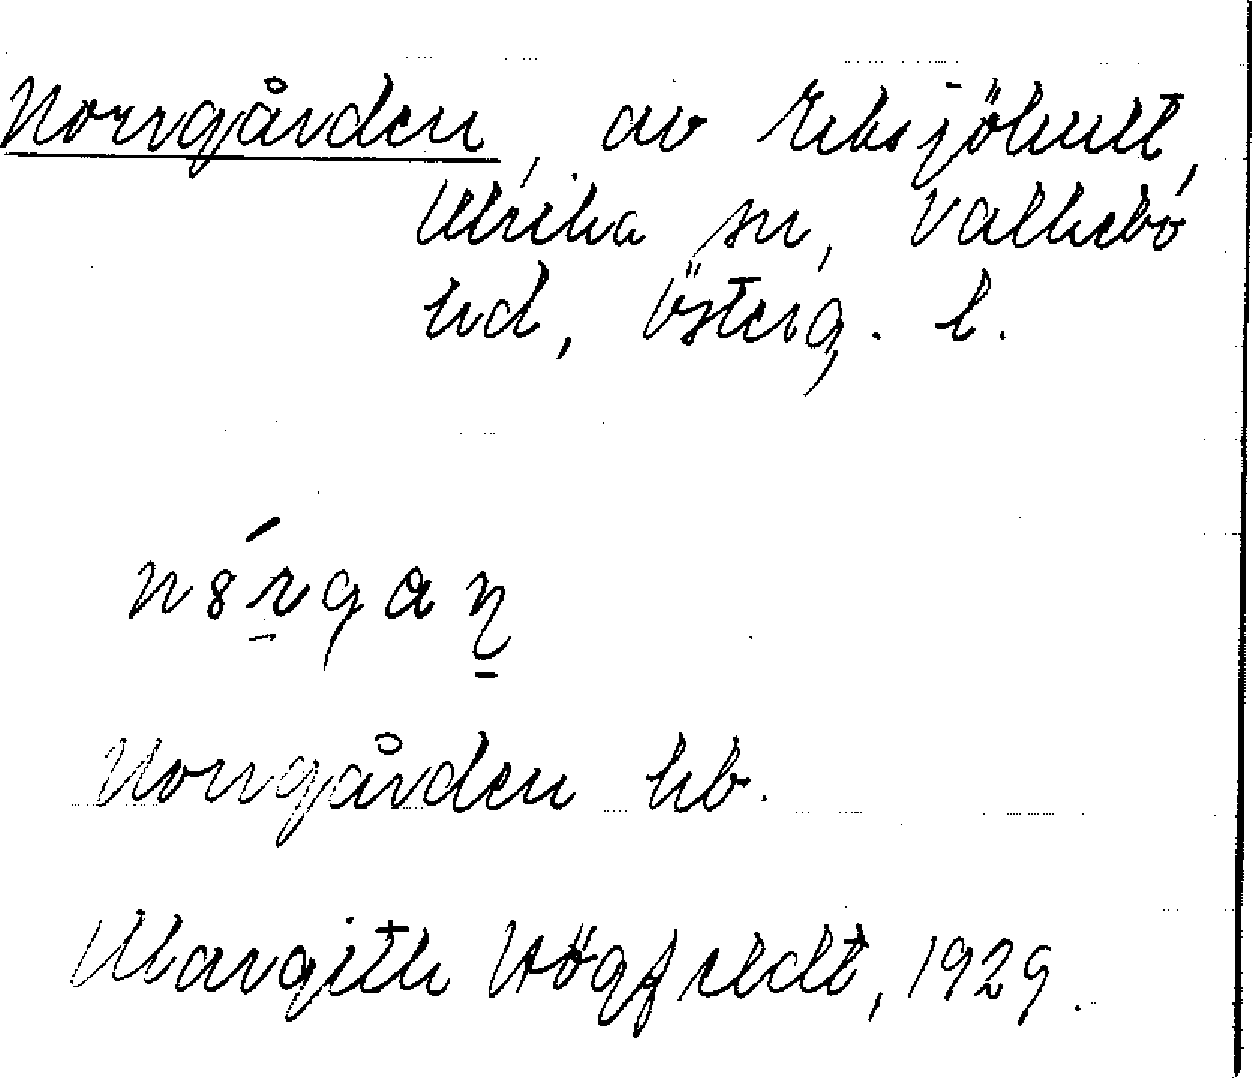 Norrgården, av Eksjöhult,
Ulrika sn, Valkebo
hd, Österg. l.
Norrgården hb.
Margith Högfeldt, 1929.